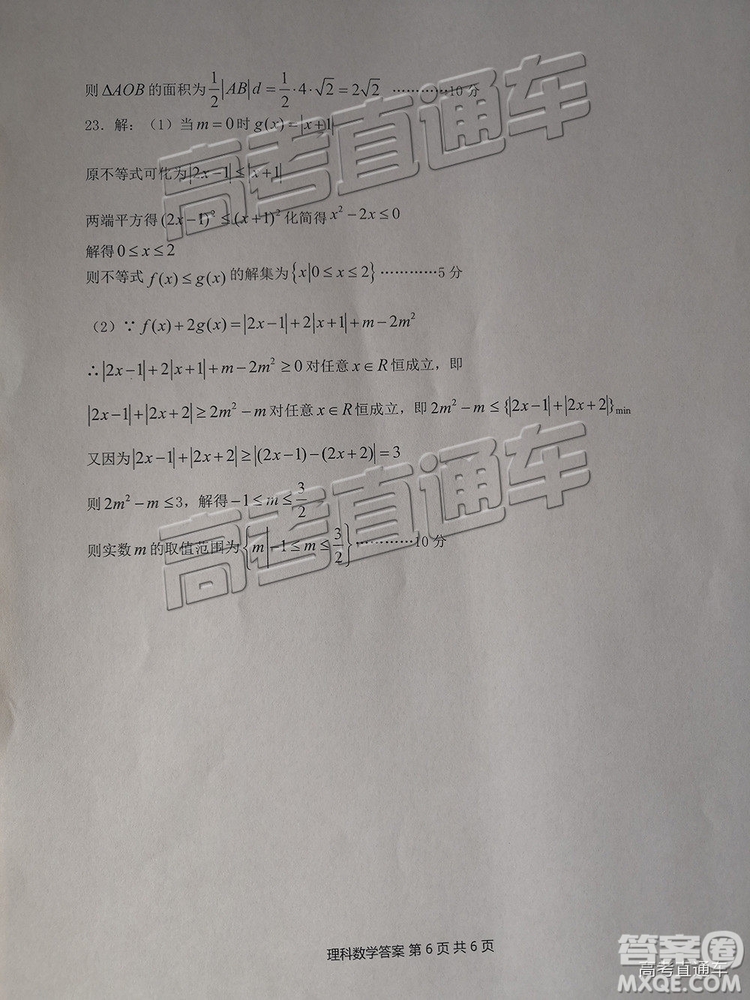 则 ΔAOB 的面积为 \frac{1}{2}|AB|d = \frac{1}{2}·4·√2 = 2√2 …………10 分
23．解：（1）当 m=0 时 g(x)=|x+1|
原不等式可化为|2x−1|≤|x+1|
两端平方得 (2x−1)²≤(x+1)² 化简得 x²−2x≤0
解得 0≤x≤2
则不等式 f(x)≤g(x) 的解集为{x|0≤x≤2}…………5 分
（2）∵ f(x)+2g(x)=|2x−1|+2|x+1|+m−2m²
∴|2x−1|+2|x+1|+m−2m²≥0 对任意 x∈R 恒成立，即
|2x−1|+|2x+2|≥2m²−m 对任意 x∈R 恒成立，即 2m²−m≤{|2x−1|+|2x+2|}min
又因为|2x−1|+|2x+2|≥|(2x−1)−(2x+2)|=3
则 2m²−m≤3，解得−1≤m≤\frac{3}{2}
则实数 m 的取值范围为{m|−1≤m≤\frac{3}{2}}…………10 分
高考直通车
高考直通车
理科数学答案 第 6 页 共 6 页
答案圈
高考直通车
MXQE.COM